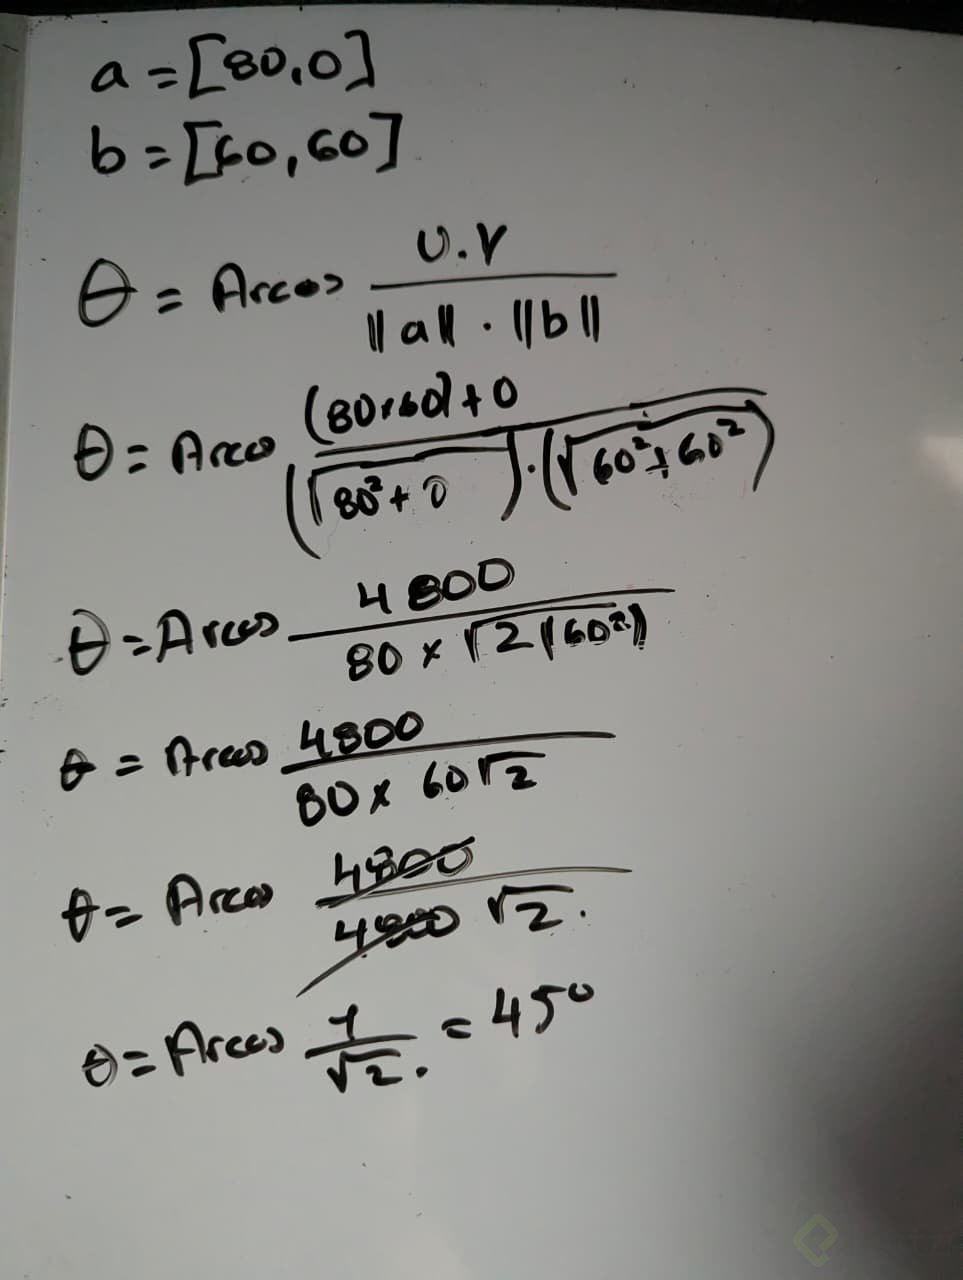 a = [80,0]
b = [60,60]
θ = Arccos U.V / ||a|| . ||b||
θ = Arccos (80×60)+0 / (√80²+0).(√60²+60²)
θ = Arccos 4800 / 80 × √2(60²)
θ = Arccos 4800 / 80 × 60√2
θ = Arccos 4800 / 4800 √2.
θ = Arccos 1/√2. = 45°